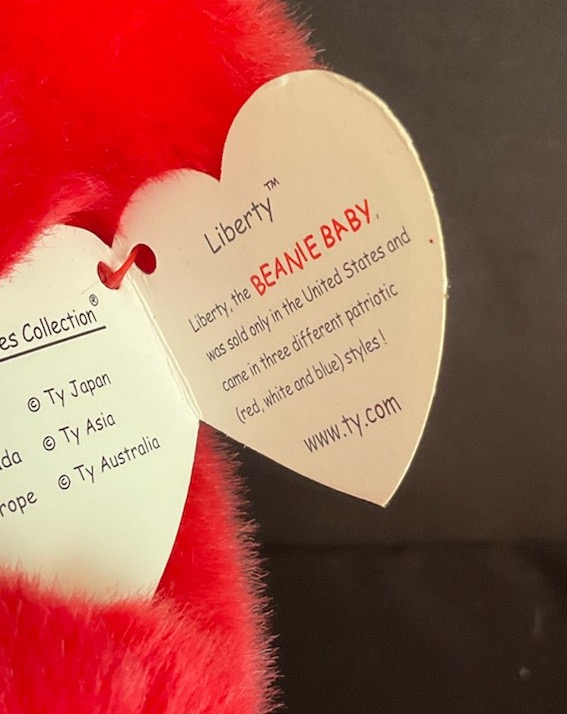 es Collection®
© Ty Japan
da © Ty Asia
rope © Ty Australia
Liberty™
Liberty, the BEANIE BABY,
was sold only in the United States and
came in three different patriotic
(red, white and blue) styles !
www.ty.com